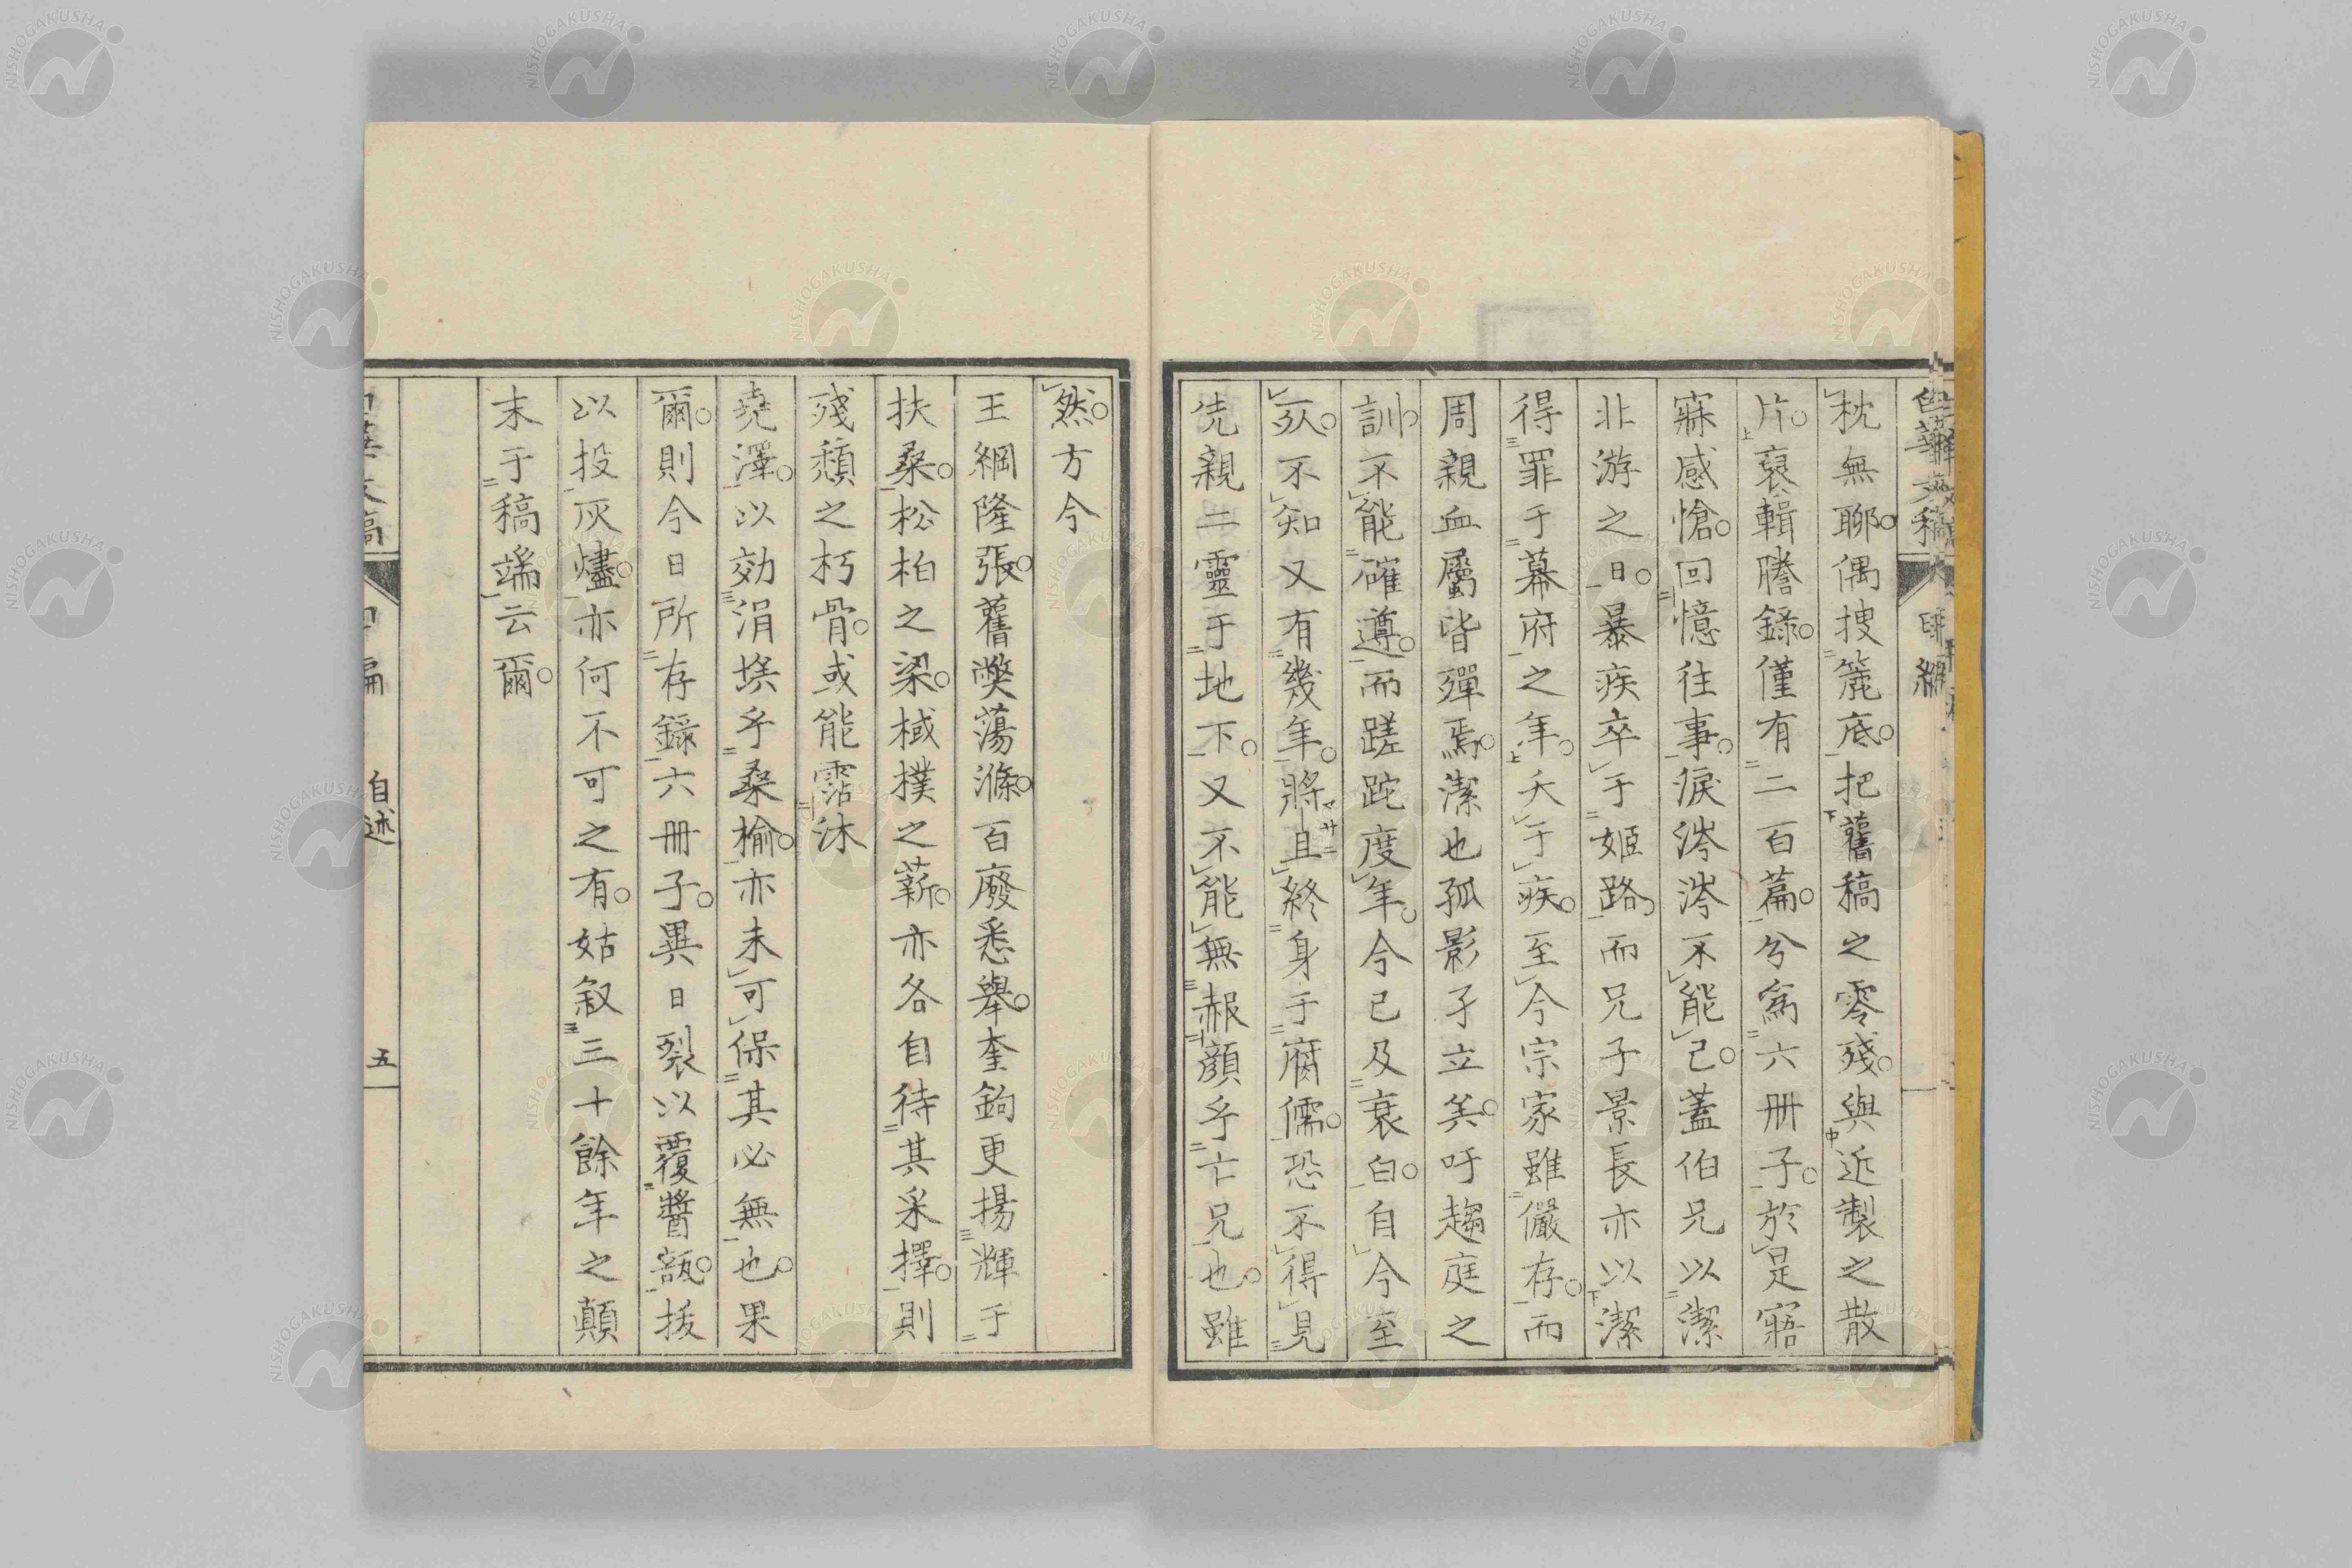 枕無聊。偶搜篋底。把舊稿之零殘。與近製之散
片。裒輯謄錄。僅有二百篇。分為六册子。於是寤
寐感愴。回憶往事。淚涔涔不能已。蓋伯兄以潔
北游之日。暴疾卒于姬路。而兄子景長亦以潔
得罪于幕府之年。夭于疾。至今宗家雖儼存。而
周親血屬皆殫焉。潔也孤影孑立矣。吁趨庭之
訓。不能確遵。而蹉跎度年。今已及衰白。自今至
死。不知又有幾年。將且終身于腐儒。恐不得見
先親二靈于地下。又不能無赧顏乎亡兄也。雖
然。方今
王綱隆張。舊弊蕩滌。百廢悉舉。奎鉤更揚輝于
扶桑。松柏之梁。棫樸之薪。亦各自待其采擇。則
殘頹之朽骨。或能霑沐
堯澤。以効涓埃乎桑榆。亦未可保其必無也。果
爾。則今日所存錄六册子。異日裂以覆醬瓿。拔
以投灰燼。亦何不可之有。姑叙三十餘年之顛
末于稿端云爾。
自述
五
NISHOGAKUSHA